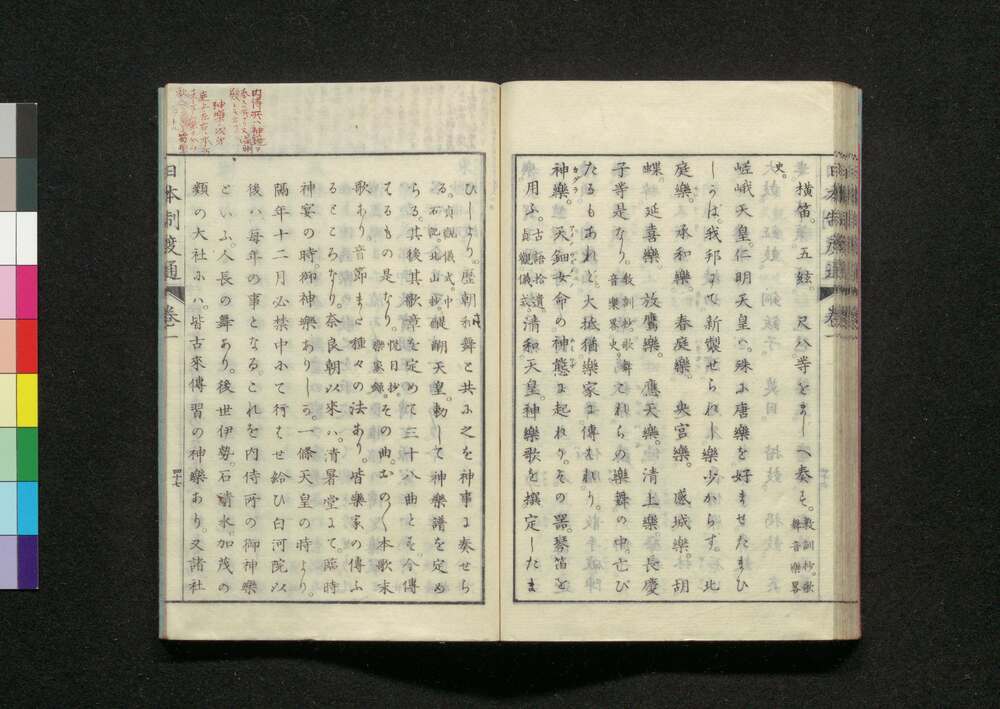 横笛。五絃。尺八等をまじへ奏す。教訓抄。歌
舞音樂畧
史。
嵯峨天皇。仁明天皇ハ。殊に唐樂を好ませたまひ
しかば我邦にて新製せられし樂少からず。北
庭樂。承和樂。春庭樂。央宮樂。感城樂。胡
蝶。延喜樂。放鷹樂。應天樂。清上樂。長慶
子等是なり。教訓抄。歌舞
音樂畧史。これらの樂舞の中。亡び
たるもあれど。大抵猶樂家に傳はれり。
神樂。天鈿女命の神態に起れり。その器。琴笛と
用ふ。古語拾遺。
貞觀儀式。清和天皇。神樂歌を撰定したま
ひしより。歴朝和舞と共に之を神事に奏せら
る。貞觀儀式。中
右記。北山抄。醍醐天皇。勅して神樂譜を定め
らる。其後其歌章を定めて三十八曲とす。今傳
はるもの是なり。悅目抄。
樂家録。その曲。おの〱本歌末
歌あり音節また種々の法あり。皆樂家の傳ふ
るところなり。奈良朝以來ハ。清暑堂にて臨時
神宴の時御神樂ありしが。一條天皇の時より。
隔年十二月必禁中にて行はせ給ひ白河院以
後ハ。毎年の事となる。これを内侍所の御神樂
といふ。人長の舞あり。後世伊勢。石清水。加茂の
類の大社にハ。皆古來傳習の神樂あり。又諸社
日本制度通
卷一
四十七
神樂次第